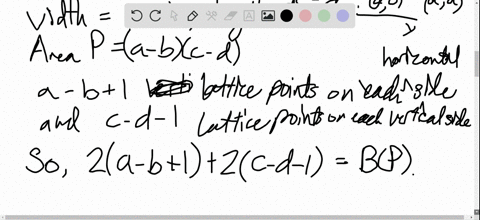 width =
(a,d)
x
Area P = (a-b)(c-d)
horizontal
a-b+1 lattice points on each side
and c-d-1 lattice points on each vertical side
So, 2(a-b+1)+2(c-d-1) = B(P).